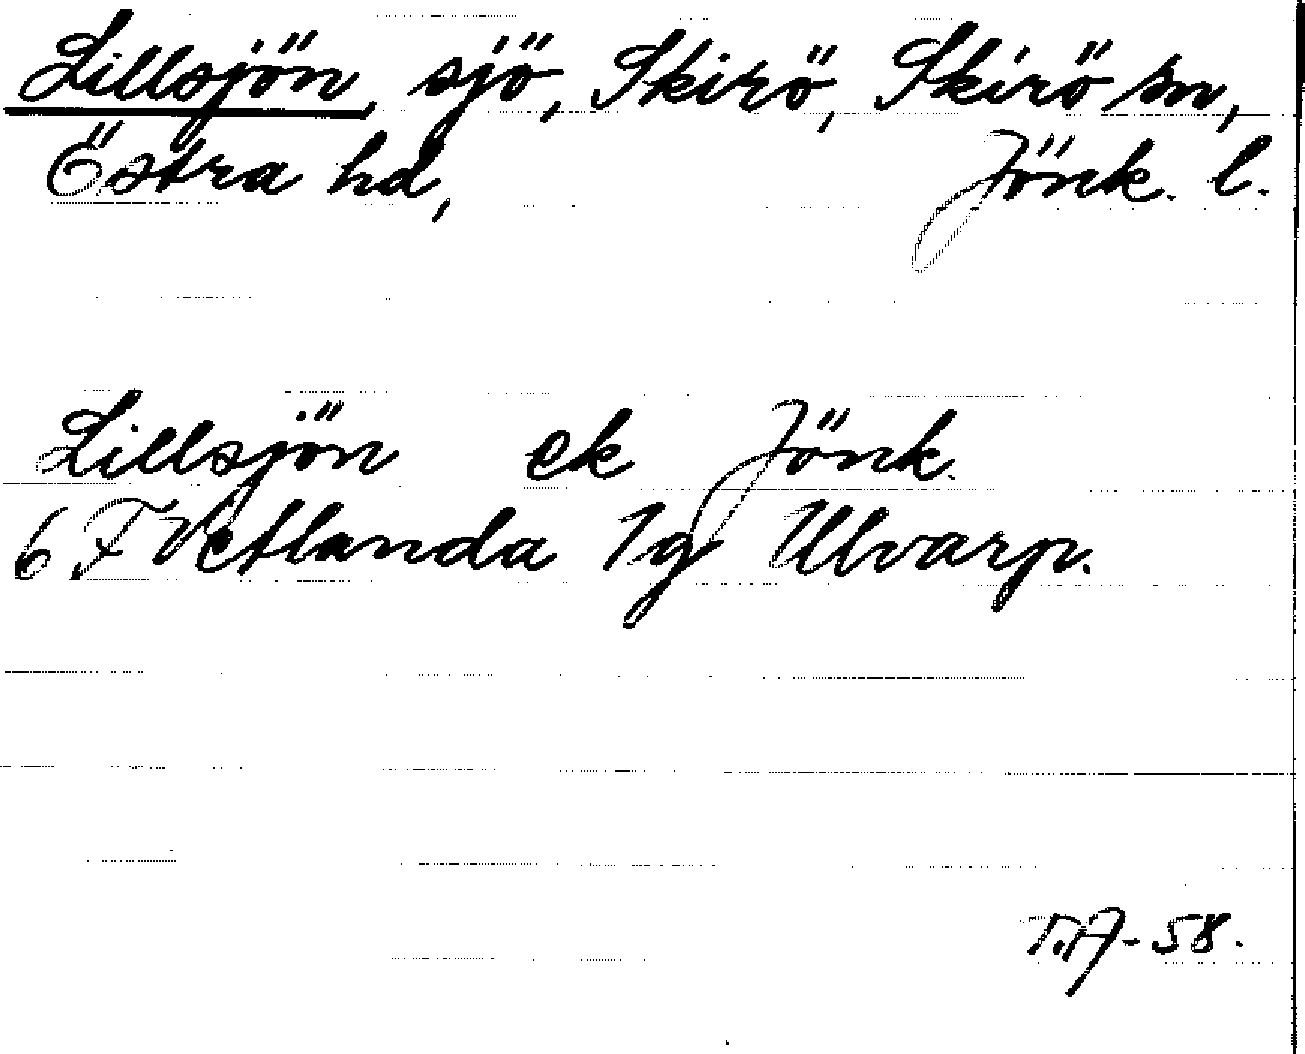 Lillsjön, sjö, Skirö, Skirö sn,
Östra hd, Jönk. l.
Lillsjön ek Jönk.
6 F Vetlanda 1g Ulvarp.
T.A-58.